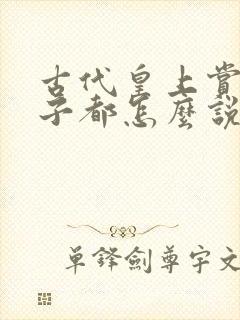 古代皇上賞
子都怎麼說
單鋒劍尊宇文